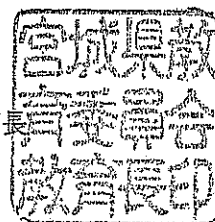 長
宮城県教
育委員会
教育長印